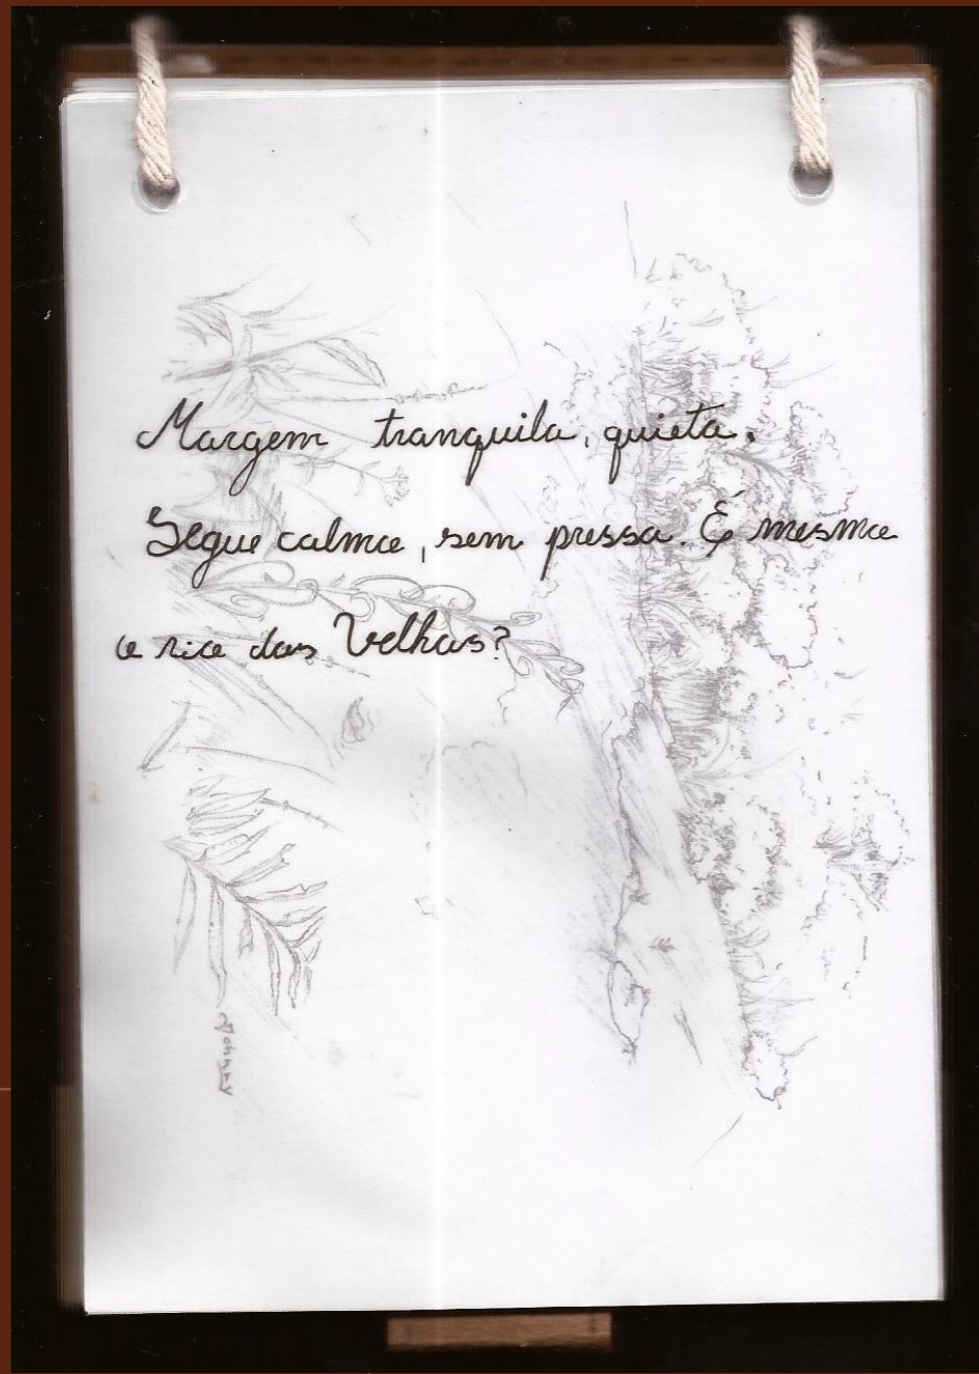 Margem tranquila, quieta.
Segue calma, sem pressa. É mesmo
o rio das Velhas?
Johnny